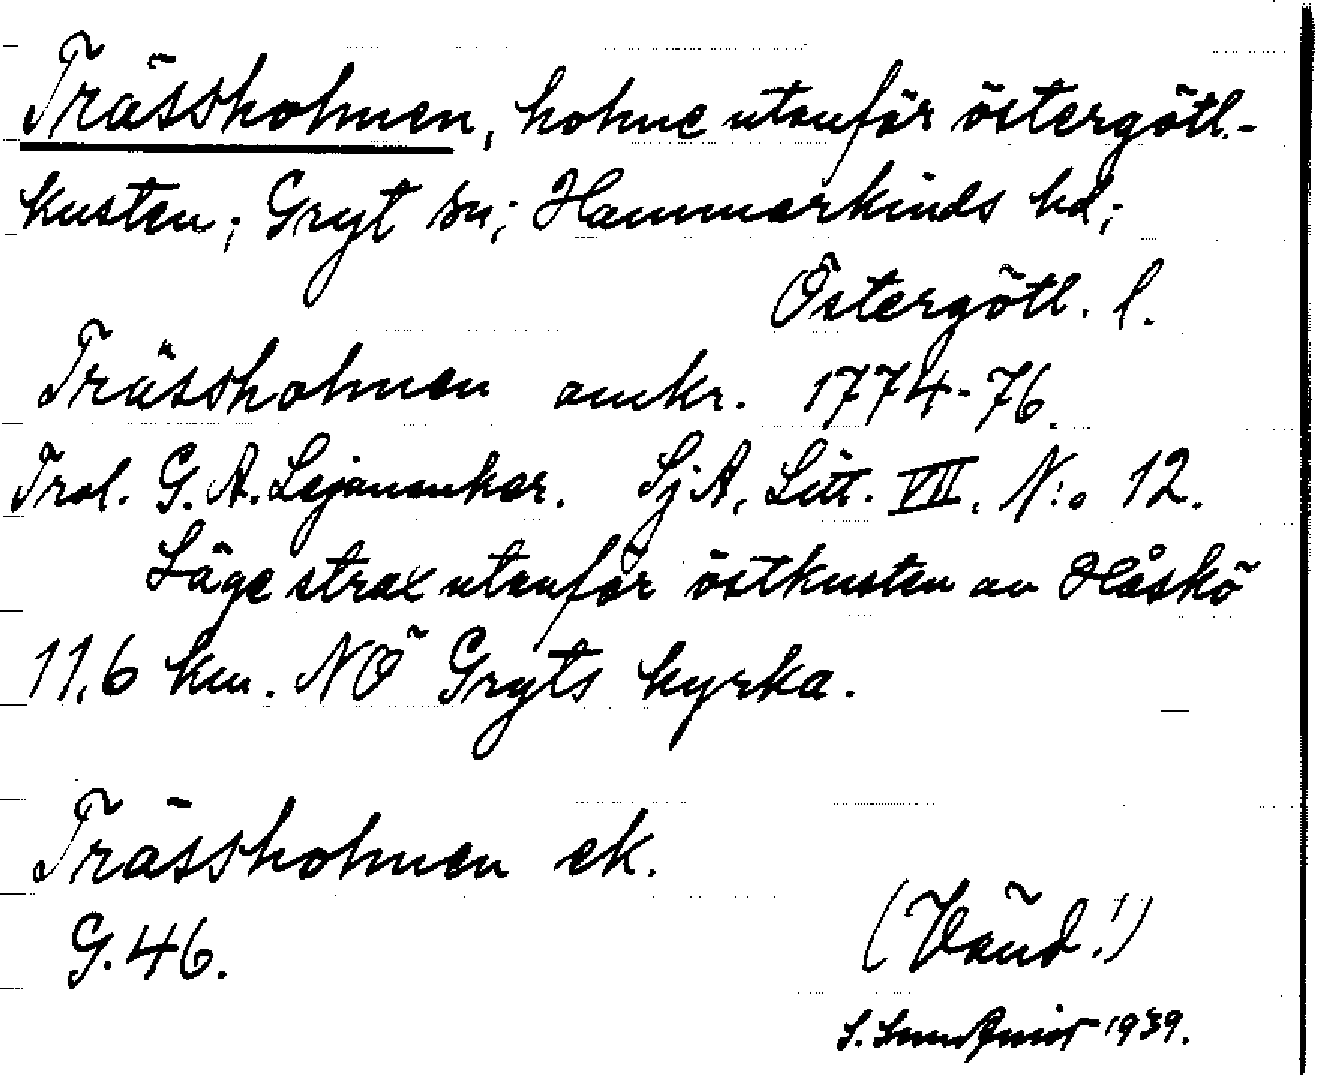 Trässholmen, holme utanför östergötl.-
kusten; Gryt sn; Hammarkinds hd;
Östergötl. l.
Trässholmen omkr. 1774-76.
Trol. G. A. Lejonankar. SjA, Litt. VII, N:o 12.
Läge strax utanför östkusten av Håskö
11,6 km. NÖ Gryts kyrka.
Trässholmen ek.
G. 46.
(Vänd!)
S. Sundqvist 1939.